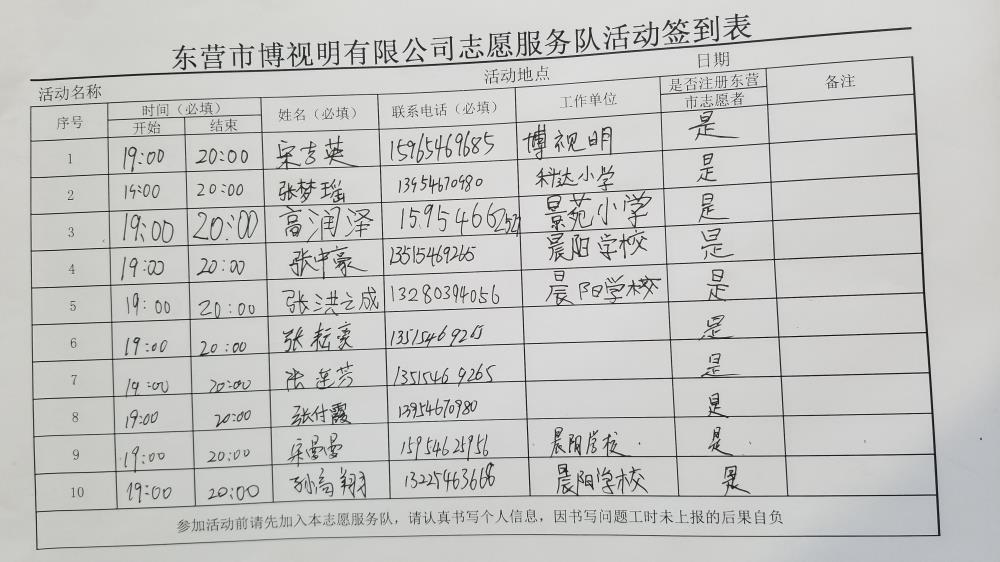 东营市博视明有限公司志愿服务队活动签到表
活动名称 活动地点 日期
序号 时间（必填） 姓名（必填） 联系电话（必填） 工作单位 是否注册东营市志愿者 备注
开始 结束
1 19:00 20:00 宋吉英 15965469685 博视明 是
2 19:00 20:00 张梦瑶 13954670980 科达小学 是
3 19:00 20:00 高润泽 15954662527 景苑小学 是
4 19:00 20:00 张中豪 13515469265 晨阳学校 是
5 19:00 20:00 张洪之成 13280394056 晨阳学校 是
6 19:00 20:00 张耘奕 13515469265 是
7 19:00 20:00 张莲芳 13515469265 是
8 19:00 20:00 张付霞 13954670980 是
9 19:00 20:00 宋曼曼 15954625956 晨阳学校 是
10 19:00 20:00 孙高翔 13225463668 晨阳学校 是
参加活动前请先加入本志愿服务队，请认真书写个人信息，因书写问题工时未上报的后果自负